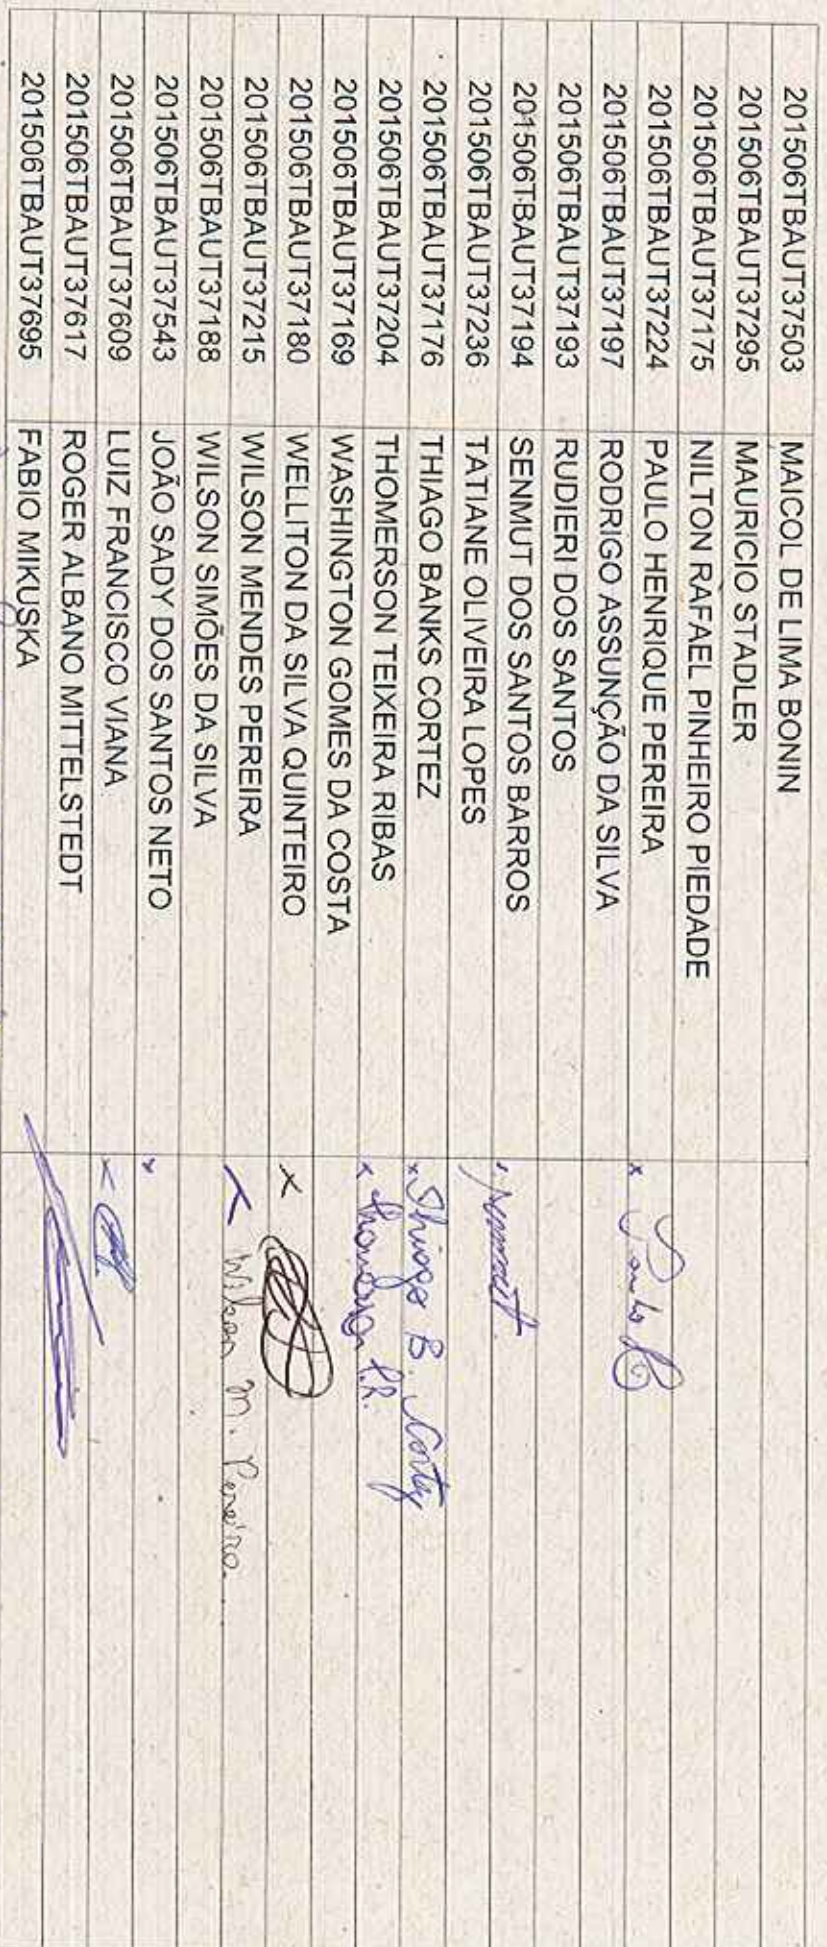 201506TBAUT37503 MAICOL DE LIMA BONIN
201506TBAUT37295 MAURICIO STADLER
201506TBAUT37175 NILTON RAFAEL PINHEIRO PIEDADE
201506TBAUT37224 PAULO HENRIQUE PEREIRA x Paulo
201506TBAUT37197 RODRIGO ASSUNÇÃO DA SILVA
201506TBAUT37193 RUDIERI DOS SANTOS
201506TBAUT37194 SENMUT DOS SANTOS BARROS Senmut
201506TBAUT37236 TATIANE OLIVEIRA LOPES
201506TBAUT37176 THIAGO BANKS CORTEZ x Thiago B. Cortez
201506TBAUT37204 THOMERSON TEIXEIRA RIBAS x Thomerson T.R.
201506TBAUT37169 WASHINGTON GOMES DA COSTA
201506TBAUT37180 WELLITON DA SILVA QUINTEIRO x
201506TBAUT37215 WILSON MENDES PEREIRA x Wilson M. Pereira
201506TBAUT37188 WILSON SIMÕES DA SILVA
201506TBAUT37543 JOÃO SADY DOS SANTOS NETO x
201506TBAUT37609 LUIZ FRANCISCO VIANA x
201506TBAUT37617 ROGER ALBANO MITTELSTEDT
201506TBAUT37695 FABIO MIKUSKA